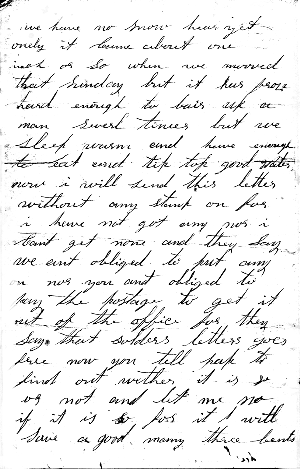 we have no snow hear yet
onely it came about one
inch or so when we moved
that Sunday but it has froze
hard enough to bair up a
man sevrl times but we
sleep warm and have enough
to eat and tip top good water
now i will send this letter
without any stamp on for
i have not got any nor i
cant get none and they say
we aint obliged to put any
on nor you ant obliged to
pay the postage to get it
out of the office for they
say that solders letters goes
free now you tell pap to
find out wether it is so
or not and let me no
if it is so for if it I will
save a good many three cents